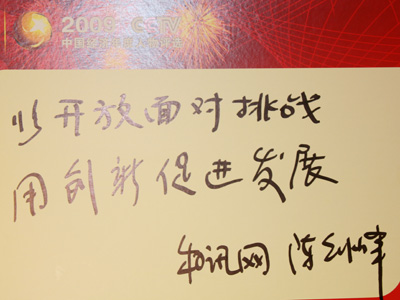 2009 CCTV
以开放面对挑战
用创新促进发展
和讯网 陈